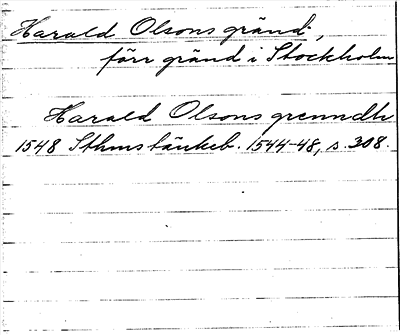 Harald Olsons gränd,
förr gränd i Stockholm
Harald Olsons grenndh
1548 Sthms tänkeb. 1544-48, s. 308.